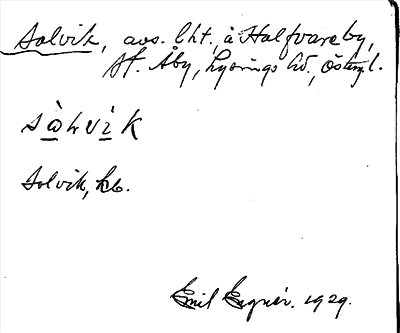 Solvik, avs. lht, å Halfvareby,
St. Åby, Lysings hd., Östergl.
sàlvìk
Solvik, kb.
Emil Egnér. 1929.